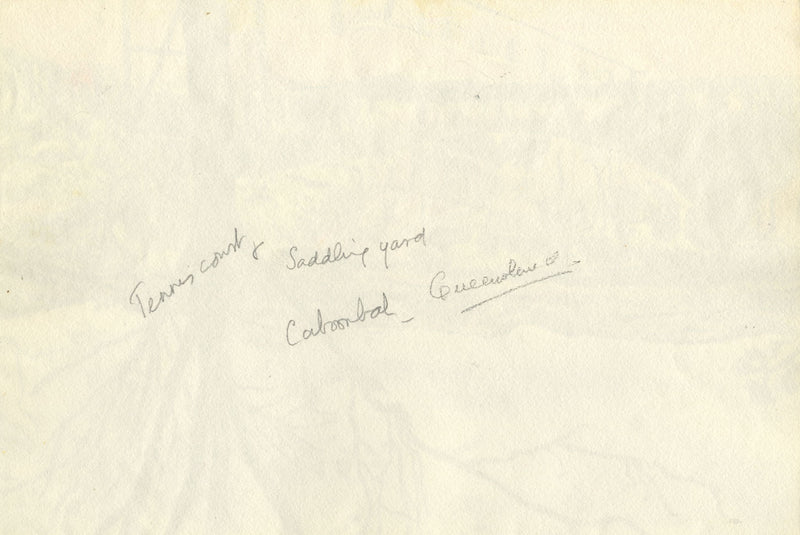 Tennis court & Saddling yard
Caboonbah - Queensland -